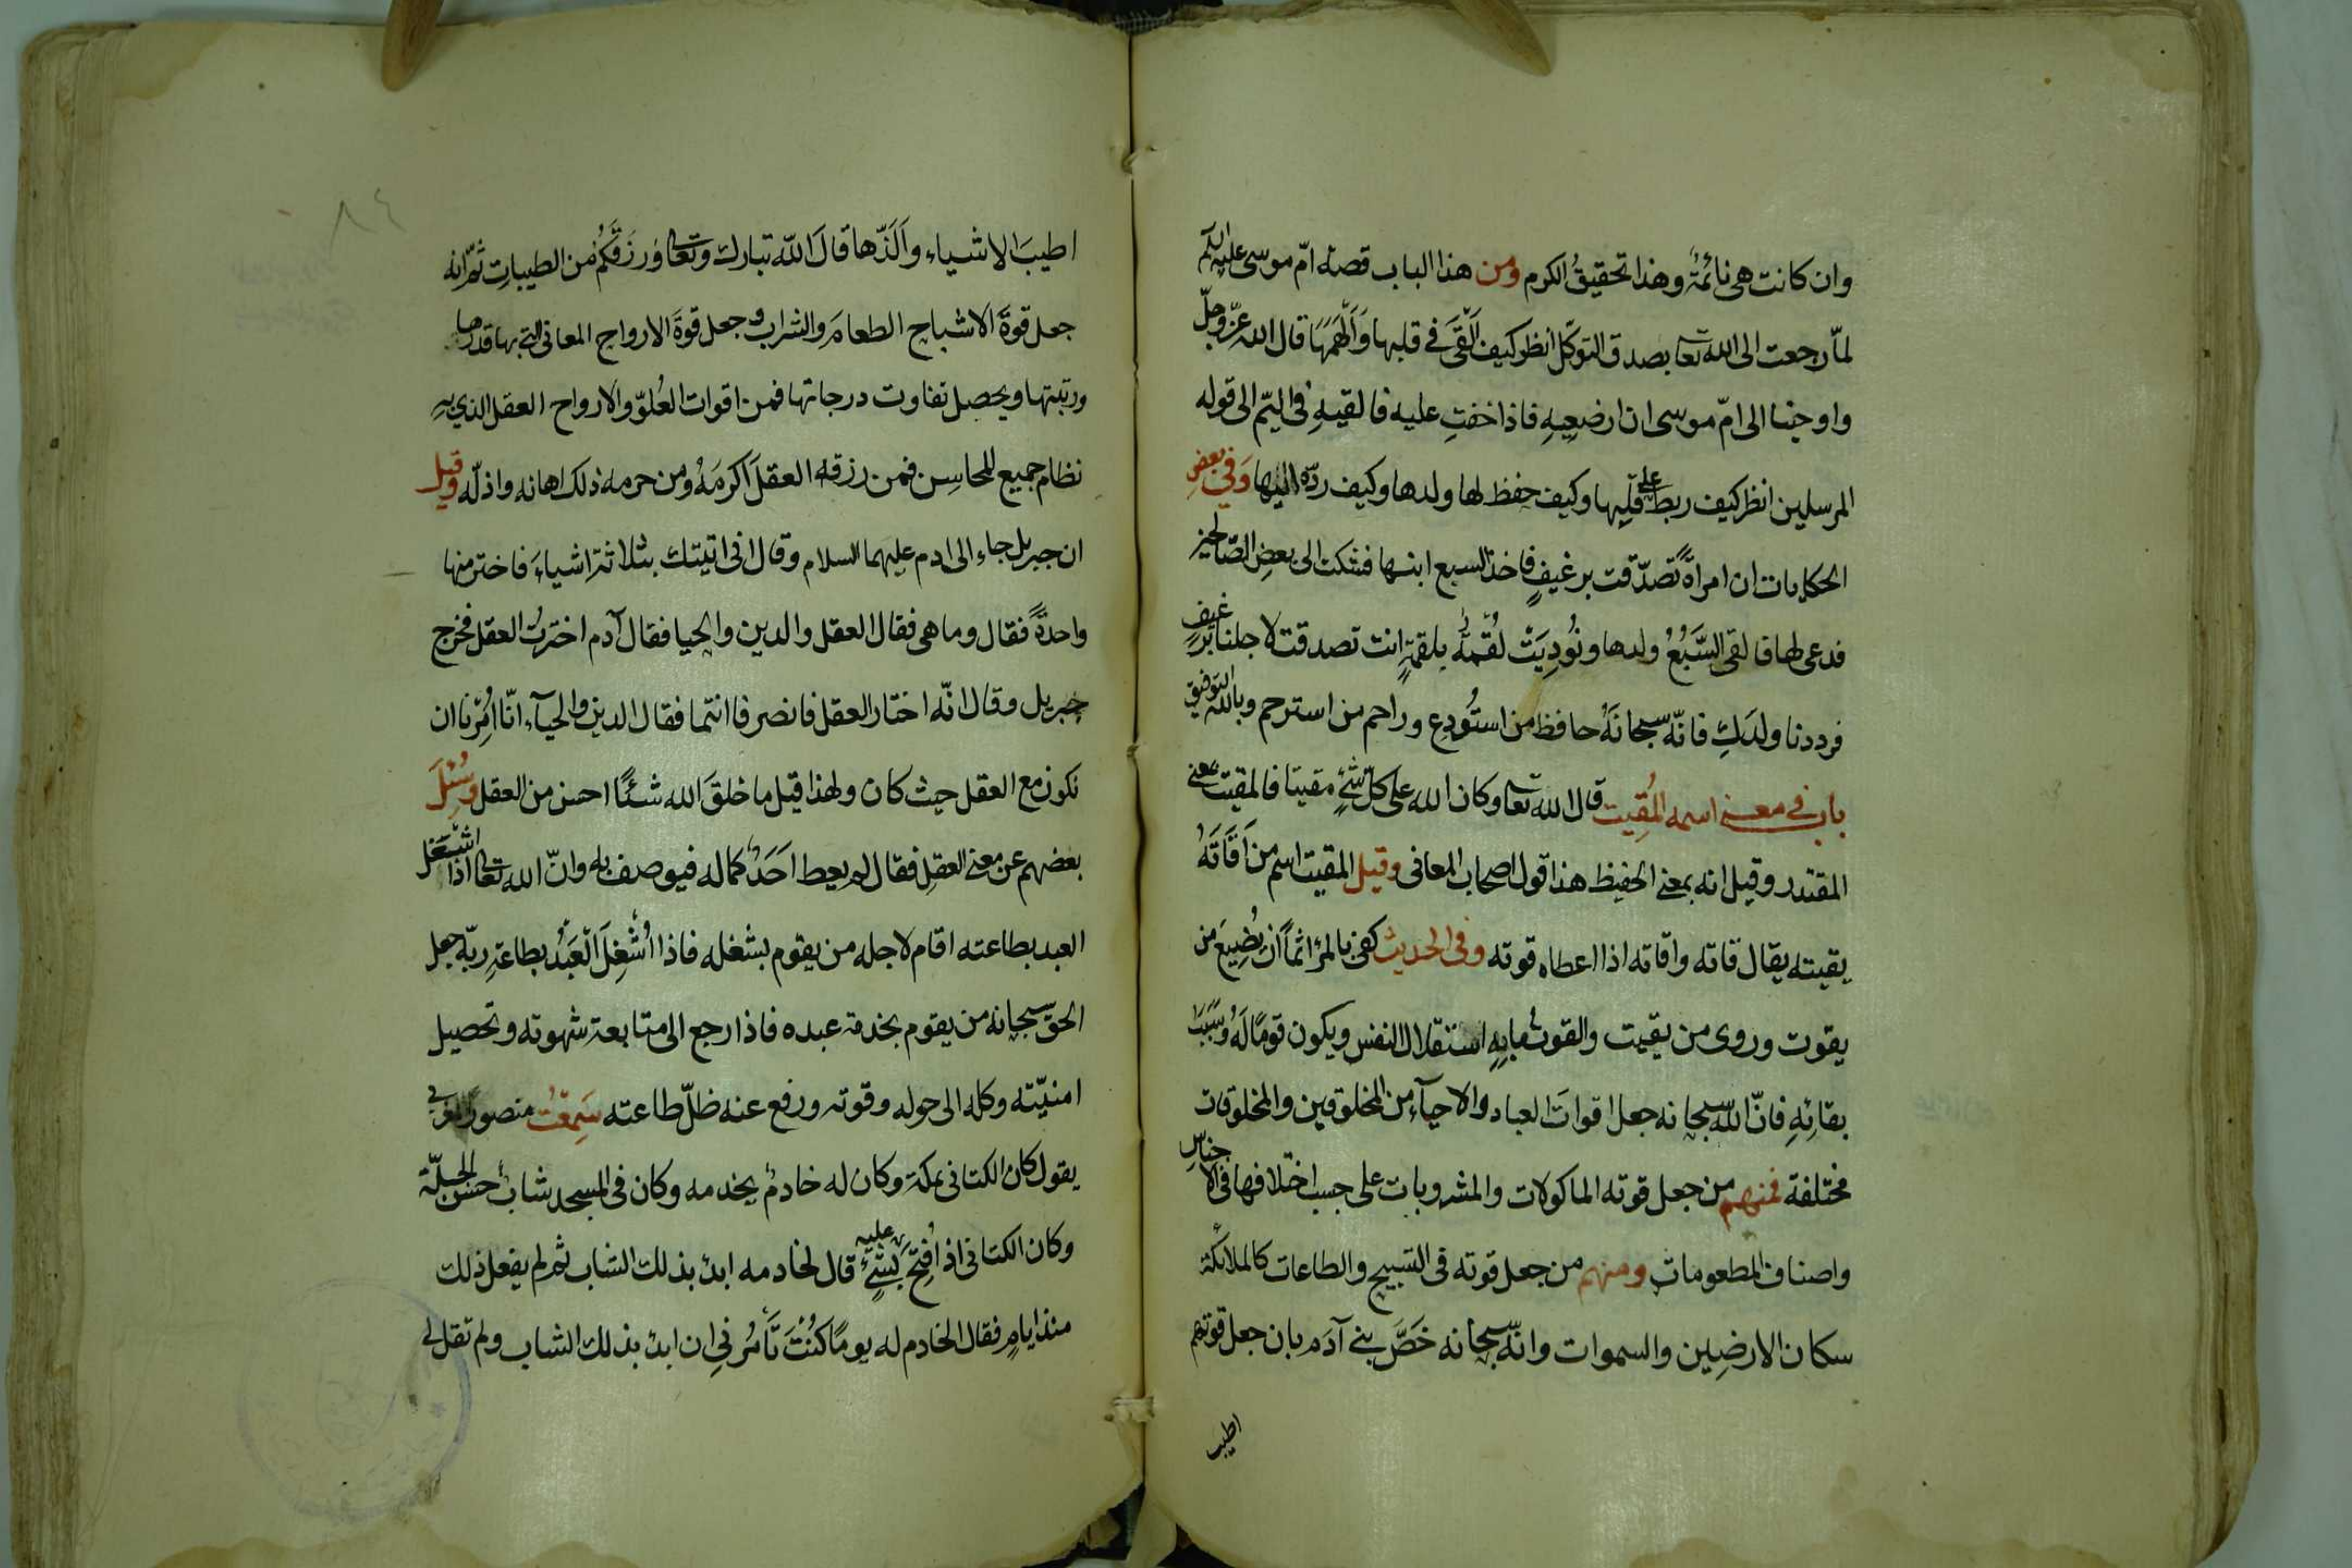 وان كانت هي نائمة وهذا تحقيقُ الكرم ومن هذا الباب قصة امّ موسى عليه السلم
لمّا رجعت الى الله تعا بصدق التوكّل انظر كيف اَلْقَى في قلبها وَاَلْهَمَهَا قال الله عزّ وجلّ
واوحينا الى امّ موسى ان ارضعِيهِ فاذا خفتِ عليه فالقيهِ في اليمّ الى قوله
المرسلين انظر كيف ربط على قلبها وكيف حفظ لها ولدها وكيف ردّه اليها وَفي بعضِ
الحكايات ان امراةً تصدّقت برغيفٍ فاخذ السبع ابنها فشكت الى بعض الصّالحين
فدعى لها فالقى السَّبُعُ ولدها ونُودِيَتْ لُقْمَةٌ بلقمةٍ انت تصدقت لاجلنا برغيف
فرددنا ولدَكِ فانّه سبحانَهُ حافظ من استُودِع وراحم من استرحم وبالله التوفيق
باب في معنى اسمه المُقِيت قال الله تعا وكان الله على كلّ شئٍ مقيتا فالمقيت بمعنى
المقتدر وقيل انه بمعنى الحفيظ هذا قول اصحاب المعاني وقيل المقيت اسم من اَقَاتَهُ
يقيته يقال قاته واقاته اذا اعطاه قوته وفي الحديث كفى بالمرء اثماً ان يُضِيعَ من
يقوت وروى من يقيت والقوت ما بِهِ استقلال النفس ويكون قومًا لَهُ وَسَبَبَ
بقائِهِ فانّ الله سبحانه جعل اقواتَ العباد والاحياء من المخلوقين والمخلوقات
مختلفة فمنهم من جعل قوته الماكولات والمشروبات على حسب اختلافها في الاجناسِ
واصناف المطعوماتِ ومنهم من جعل قوته في التسبيح والطاعات كالملائكة
سكان الارضِين والسموات وانّه سبحانه خَصَّ بني آدَم بان جعل قوتهم
اطيب
٨٤
اطيبَ الاشياء واَلَذّها قالَ الله تبارك وتعا وَرزَقَكُم من الطيباتِ ثمّ انه
جعل قوةَ الاشباح الطعامَ والشراب وجعل قوةَ الارواح المعاني التي بها قدرها
ورتبتها ويحصل تفاوت درجاتها فمن اقوات العُلوّ والارواح العقل الذي به
نظام جميع المحاسِن فمن رزقه العقلَ اكرَمَهُ ومن حرمه ذلك اهانه واذلّه وقيل
ان جبريل جاء الى ادم عليهما السلام وقال اني اتيتك بثلاثة اشياءَ فاختر منها
واحدةً فقال وما هي فقال العقل والدين والحيا فقال آدم اخترتُ العقل فخرج
جبريل وقال انّه اختار العقل فانصرفا انتما فقال الدين والحياء انّا اُمِرْنا ان
نكون مع العقل حيث كان ولهذا قيل ما خلقَ الله شئًا احسن من العقل وسُئِلَ
بعضهم عن معنى العقلِ فقال لم يعط اَحَدٌ كماله فيوصف به وانّ الله تعا اذا اشتغل
العبد بطاعته اقام لاجله من يقوم بشغله فاذا اُشْغِلَ الْعَبْدُ بطاعةِ ربّه جعل
الحق سبحانه من يقوم بخدمة عبده فاذا رجع الى متابعة شهوته وتحصيل
امنيّته وكله الى حوله وقوته ورفع عنه ظلّ طاعته سَمِعْتُ منصور المغربي
يقول كان الكتاني بمكة وكان له خادمٌ يخدمه وكان في المسجد شابٌ حسن الجبلّة
وكان الكتاني اذا فُتِحَ عليه بشئٍ قال لخادمه ابدئ بذلك الشاب ثم لم يفعل ذلك
منذ ايامٍ فقال الخادم له يومًا كُنْتَ تَأْمُرُنِي ان ابدئ بذلك الشاب ولم تقل لي